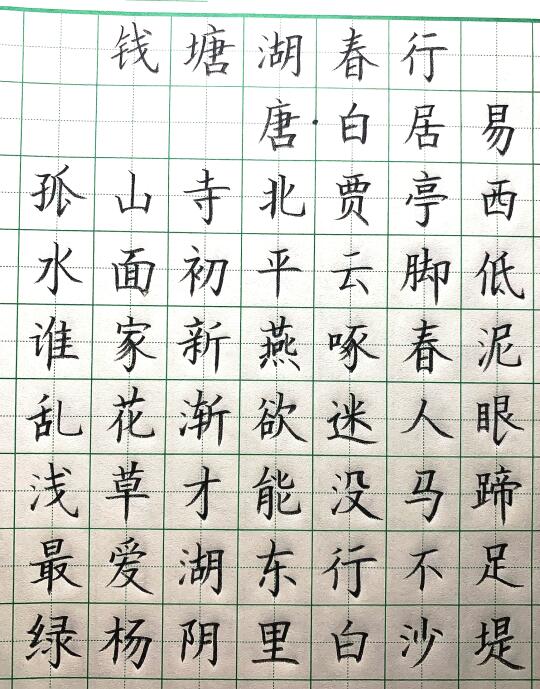 钱塘湖春行
唐·白居易
孤山寺北贾亭西
水面初平云脚低
谁家新燕啄春泥
乱花渐欲迷人眼
浅草才能没马蹄
最爱湖东行不足
绿杨阴里白沙堤